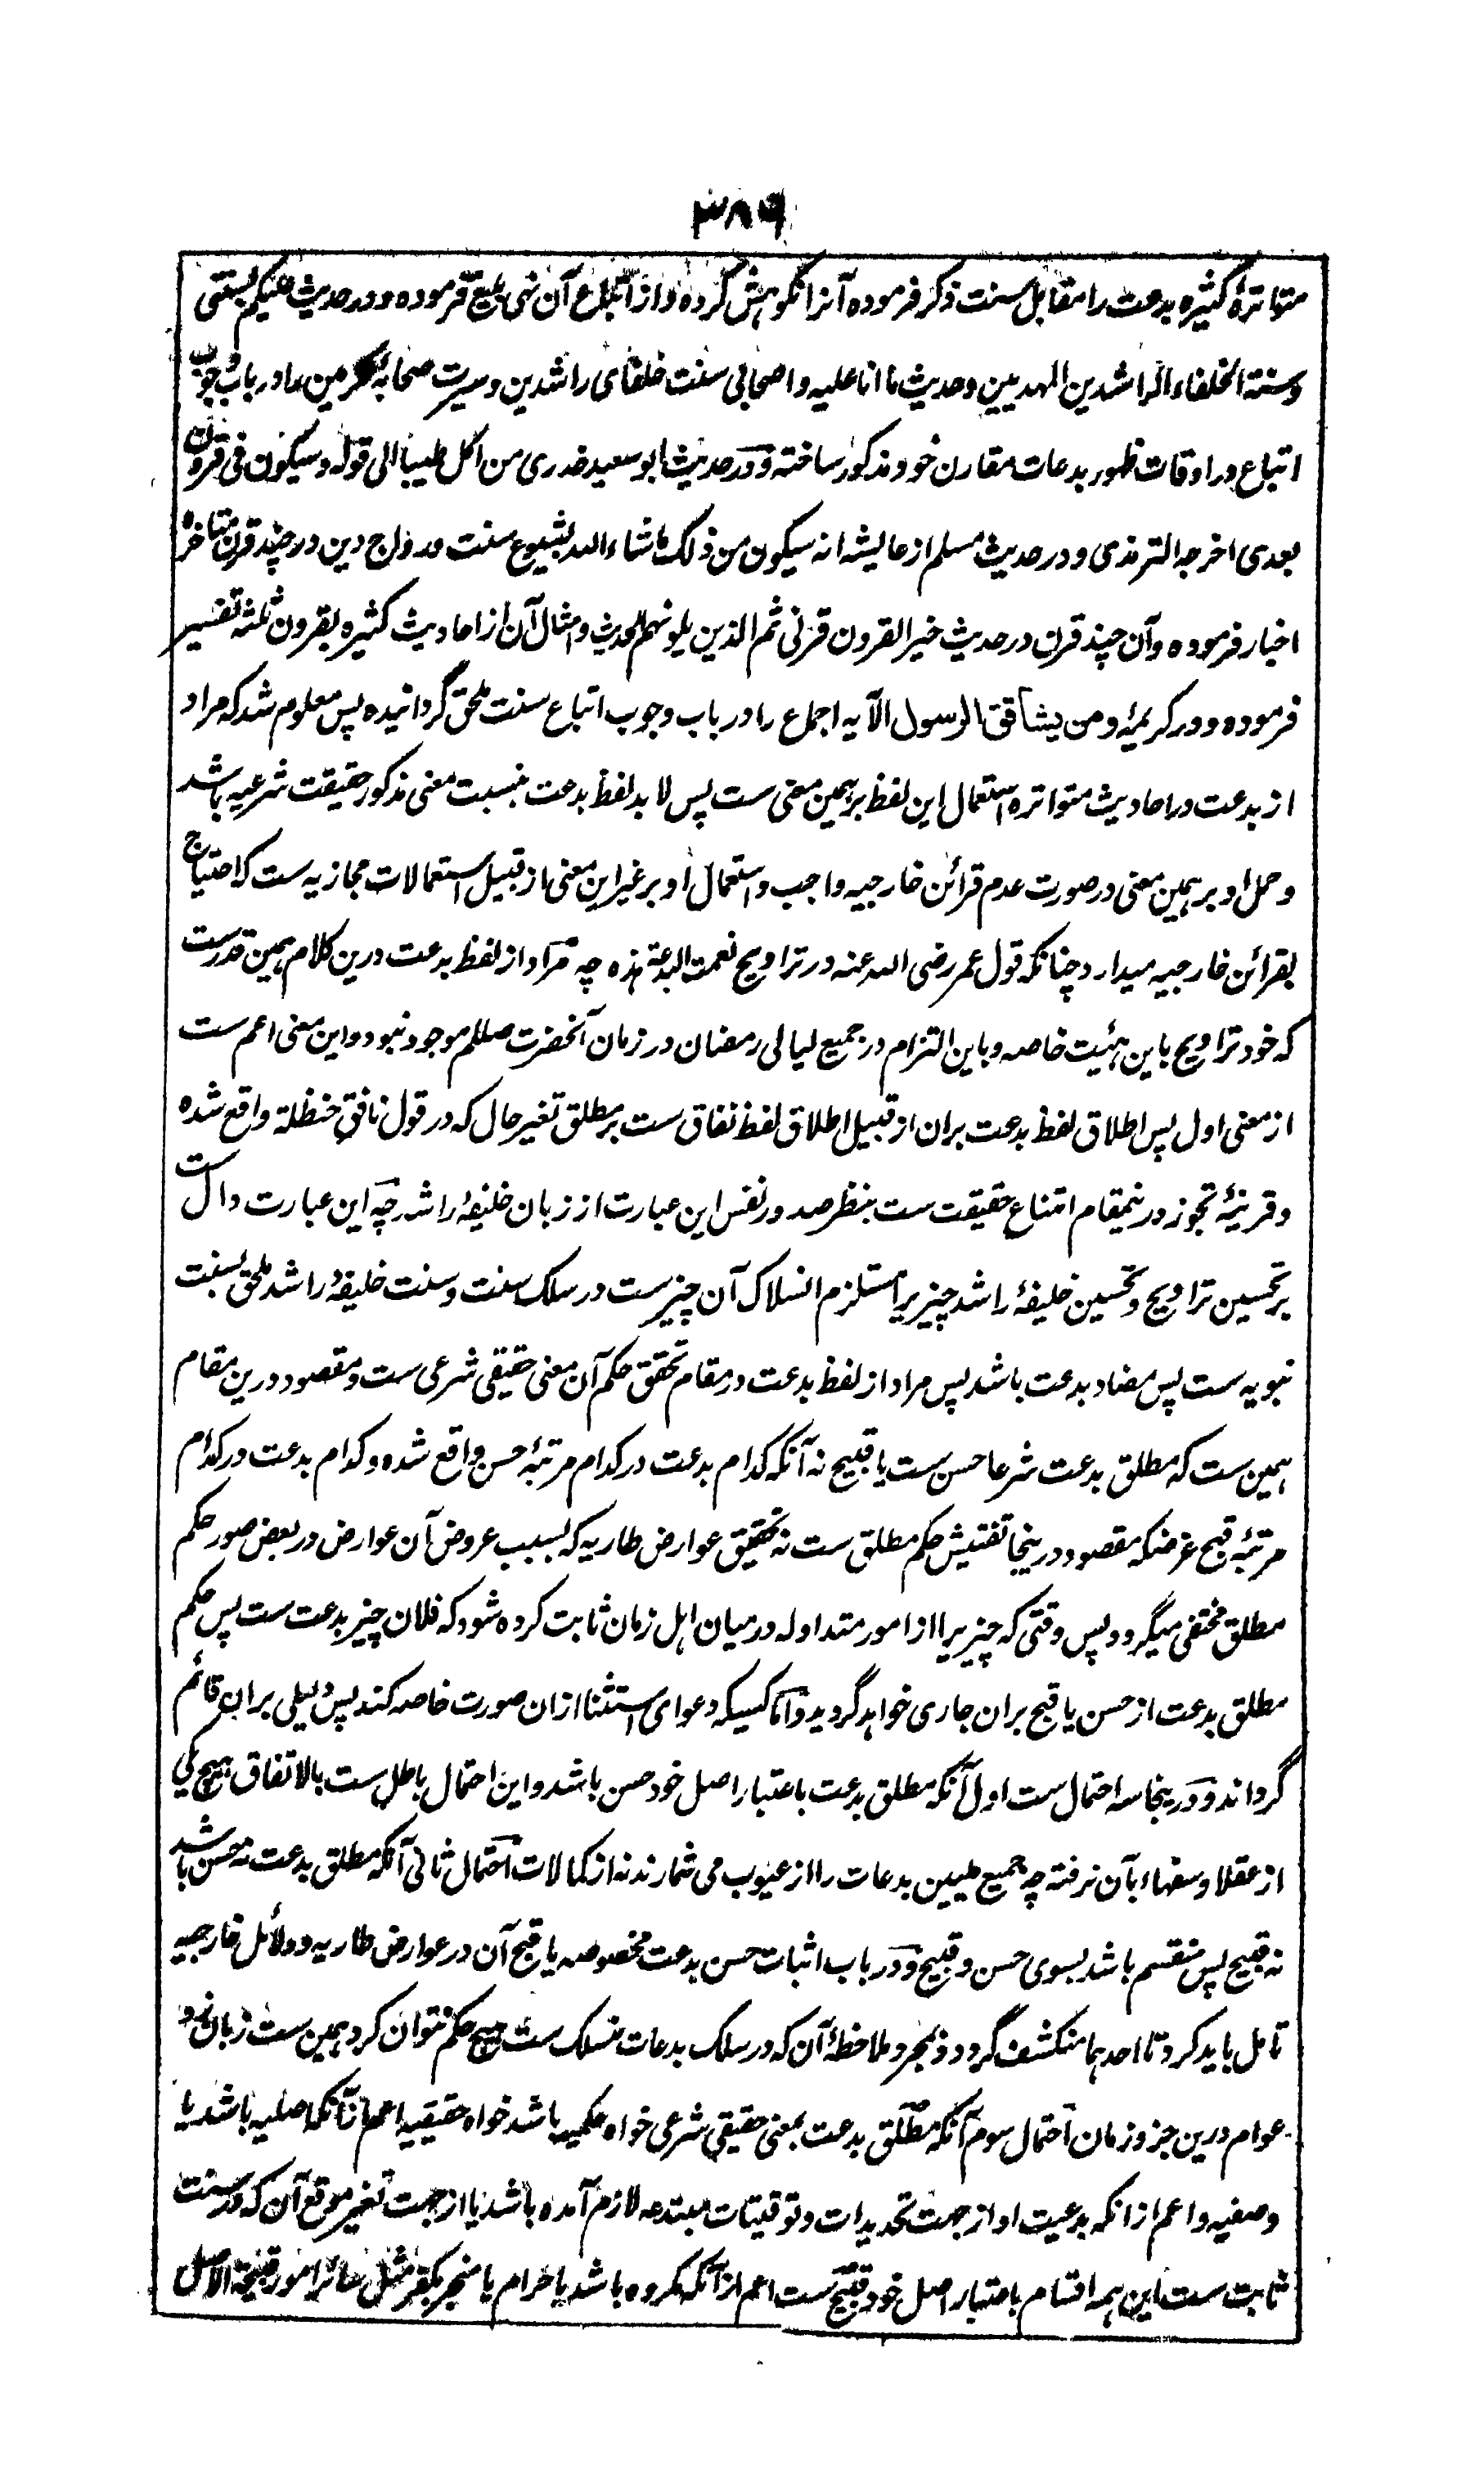 ۳۸۹
متواترهٔ کثیره بدعت را مقابل سنت ذکر فرموده آنرا نکوهش کرده و از اتباع آن نهی بلیغ فرموده و در حدیث علیکم بسنتی
وسنة الخلفاء الراشدین المهدیین وحدیث ما انا علیه واصحابی سنت خلفای راشدین وسیرت صحابهٔ مکرمین را در باب وجوب
اتباع در اوقات ظهور بدعات مقارن خود مذکور ساخته و در حدیث ابوسعید خدری من اکل طیبا الی قوله وسیکون فی قرون
بعدی اخرجه الترمذی و در حدیث مسلم از عایشه انه سیکون من ذلک ماشاءالله بشیوع سنت و رواج دین در چند قرن متاخره
اخبار فرموده وآن چند قرن در حدیث خیر القرون قرنی ثم الذین یلونهم الحدیث وامثال آن از احادیث کثیره بقرون ثلثه تفسیر
فرموده و در کریمهٔ ومن یشاقق الرسول الآیه اجماع را در باب وجوب اتباع سنت ملحق گردانیده پس معلوم شد که مراد
از بدعت در احادیث متواتره استعمال این لفظ بر همین معنی ست پس لابد لفظ بدعت بنسبت معنی مذکور حقیقت شرعیه باشد
وحمل او بر همین معنی در صورت عدم قرائن خارجیه واجب واستعمال او بر غیر این معنی از قبیل استعمالات مجازیه ست که احتیاج
بقرائن خارجیه میدارد چنانکه قول عمر رضی الله عنه در تراویح نعمت البدعة هذه چه مراد از لفظ بدعت درین کلام همین قدرست
که خود تراویح باین هئیت خاصه وباین التزام در جمیع لیالی رمضان در زمان آنحضرت صللم موجود نبود واین معنی اعم ست
از معنی اول پس اطلاق لفظ بدعت بران از قبیل اطلاق لفظ نفاق ست بر مطلق تغیر حال که در قول نافق حنظلة واقع شده
وقرینهٔ تجوز درینمقام امتناع حقیقت ست بنظر صدور نفس این عبارت از زبان خلیفهٔ راشد چه این عبارت دال ست
بر تحسین تراویح وتحسین خلیفهٔ راشد چیزیرا مستلزم انسلاک آن چیزست در سلک سنت وسنت خلیفهٔ راشد ملحق بسنت
نبویه ست پس مضاد بدعت باشد پس مراد از لفظ بدعت در مقام تحقق حکم آن معنی حقیقی شرعی ست ومقصود درین مقام
همین ست که مطلق بدعت شرعا حسن ست یا قبیح نه آنکه کدام بدعت در کدام مرتبهٔ حسن واقع شده وکدام بدعت در کدام
مرتبهٔ قبح غرضکه مقصود درینجا تفتیش حکم مطلق ست نه تحقیق عوارض طاریه که بسبب عروض آن عوارض در بعض صور حکم
مطلق مختفی میگردد پس وقتی که چیزیرا از امور متداوله در میان اهل زمان ثابت کرده شود که فلان چیز بدعت ست پس حکم
مطلق بدعت از حسن یا قبح بران جاری خواهد گردید واما کسیکه دعوای استثنا ازان صورت خاصه کند پس دلیلی بران قائم
گرداند ودرینجا سه احتمال ست اول آنکه مطلق بدعت باعتبار اصل خود حسن باشد واین احتمال باطل ست بالاتفاق هیچ یکی
از عقلا وسفهاء بآن نرفته چه جمیع ملیین بدعات را از عیوب می شمارند نه از کمالات احتمال ثانی آنکه مطلق بدعت نه حسن باشد
نه قبیح پس منقسم باشد بسوی حسن وقبیح ودر باب اثبات حسن بدعت مخصوصه یا قبح آن در عوارض طاریه ودلائل خارجیه
تامل باید کرد تا احدهما منکشف گردد وبمجرد ملاحظهٔ آن که در سلک بدعات منسلک ست هیچ حکم نتوان کرد همین ست زبان زد
عوام درین جزو زمان احتمال سوم آنکه مطلق بدعت بمعنی حقیقی شرعی خواه حکمیه باشد خواه حقیقیه اعم ازآنکه اصلیه باشد یا
وصفیه واعم ازانکه بدعیت او از جهت تحدیدات وتوقیتات مبتدعه لازم آمده باشد یا از جهت تغیر موقع آن که در سنت
ثابت ست این همه اقسام باعتبار اصل خود قبیح ست اعم ازآنکه مکروه باشد یا حرام یا منجر بکفر مثل سائر امور قبیحة الاصل